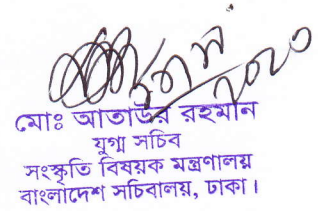 মোঃ আতাউর রহমান
যুগ্ম সচিব
সংস্কৃতি বিষয়ক মন্ত্রণালয়
বাংলাদেশ সচিবালয়, ঢাকা।